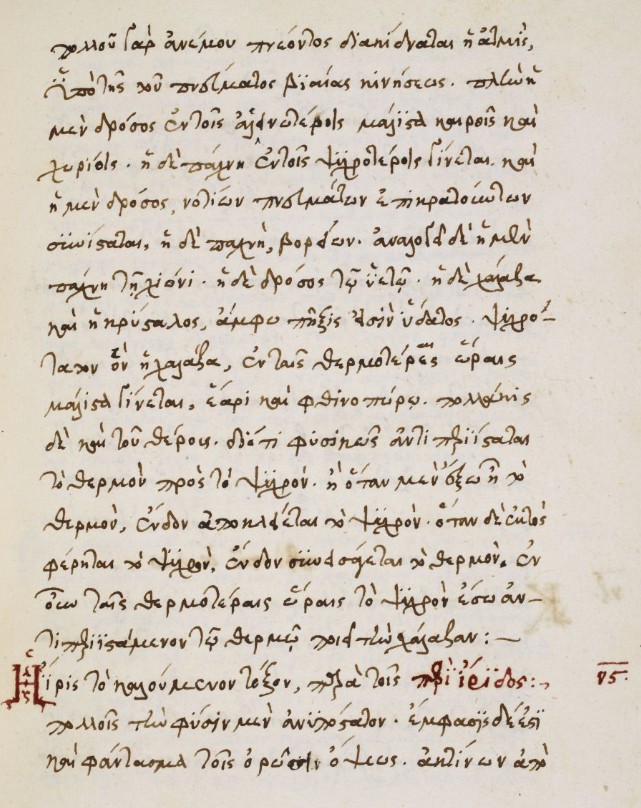 πολλοῦ γὰρ ἀνέμου πνέοντος διακίδναται ἡ ἀτμὶς,
ὑπὸ τῆς τοῦ πνεύματος βιαίας κινήσεως. πλὴν ἡ
μὲν δρόσος ἐν τοῖς ἀλεεινοτέροις μάλιστα καιροῖς καὶ
χωρίοις. ἡ δὲ πάχνη ἐν τοῖς ψυχροτέροις γίνεται. καὶ
ἡ μὲν δρόσος, νοτίων πνευμάτων ἐπικρατούντων
συνίσταται, ἡ δὲ πάχνη, βορείων. ἀναλογεῖ δὲ ἡ μὲν
πάχνη τῇ χιόνι. ἡ δὲ δρόσος τῷ ὑετῷ. ἡ δὲ χάλαζα
καὶ ἡ κρύσταλος, ἄμφω πῆξις εἰσὶν ὕδατος. ψυχρο-
τατον οὖν ἡ χάλαζα, ἐν ταῖς θερμοτέραις ὥραις
μάλιστα γίνεται, ἔαρι καὶ φθινοπώρῳ. πολλάκις
δὲ καὶ τοῦ θέρους. διότι φυσικῶς ἀντιπεριίσταται
τὸ θερμὸν πρὸς τὸ ψυχρόν. ἢ ὅταν μὲν ἔξω ᾖ τὸ
θερμὸν, ἔνδον ἀποκλείεται τὸ ψυχρόν. ὅταν δὲ ἐκτὸς
φέρηται τὸ ψυχρὸν, ἔνδον συνεισάγεται τὸ θερμόν. ἐν
οὖν ταῖς θερμοτέραις ὥραις τὸ ψυχρὸν ἔσω ἀν-
τιπεριιστάμενον τῷ θερμῷ ποιεῖ τὴν χάλαζαν:
Ἡ ἶρις τὸ καλούμενον τόξον, παρὰ τοῖς περὶ ἴριδος:
πολλοῖς τὴν φύσιν μὲν ἀνυπόστατον. ἔμφασις δέ ἐστι
καὶ φάντασμα τοῖς ὁρῶσιν ὄψεως. ἀκτίνων ἀπὸ